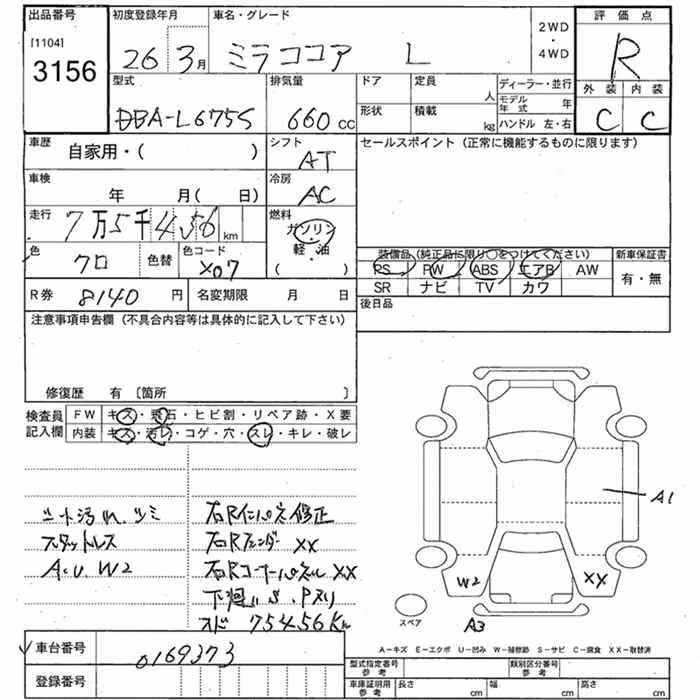 出品番号
[1104]
3156
初度登録年月
26 3月
車名・グレード
ミラココア L
2WD
・
4WD
評価点
R
外装 内装
C C
型式
DBA-L675S
排気量
660 cc
ドア
定員
人
形状
積載
kg
ディーラー・並行
モデル年式 年
ハンドル 左・右
車歴
自家用・( )
シフト
AT
セールスポイント (正常に機能するものに限ります)
車検
年 月( 日)
冷房
AC
走行
7万5千456 km
燃料
ガソリン
軽・油
( )
色
クロ
色替
色コード
X07
装備品 (純正品に限り○をつけてください)
新車保証書
PS PW ABS エアB AW
有・無
SR ナビ TV カワ
R券 8140 円
名変期限 月 日
後日品
注意事項申告欄 (不具合内容等は具体的に記入して下さい)
修復歴 有 〔箇所 〕
検査員記入欄
FW キズ・飛石・ヒビ割・リペア跡・X要
内装 キズ・汚レ・コゲ・穴・スレ・キレ・破レ
シート汚れ、シミ
スタットレス
A、U、W2
右Rインパネ修正
右Rフェンダー XX
右Rコーナーパネル XX
下廻りS、Pヌリ
メーター 75456Km
A1
W2
XX
A3
スペア
A－キズ E－エクボ U－凹み W－補修跡 S－サビ C－腐食 XX－取替済
車台番号
0169373
登録番号
型式指定番号 参考
類別区分番号 参考
車庫証明用 参考
長さ cm
幅 cm
高さ cm